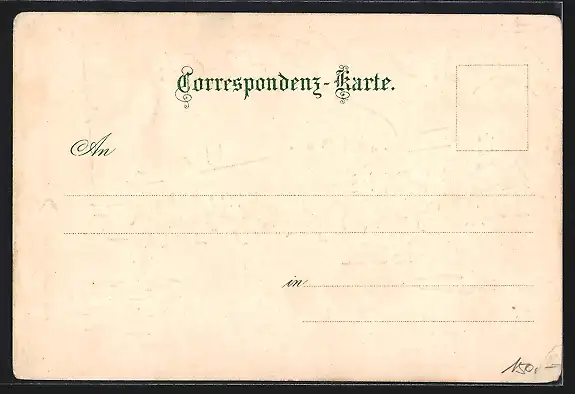 Correspondenz-Karte.
An
in
150,-